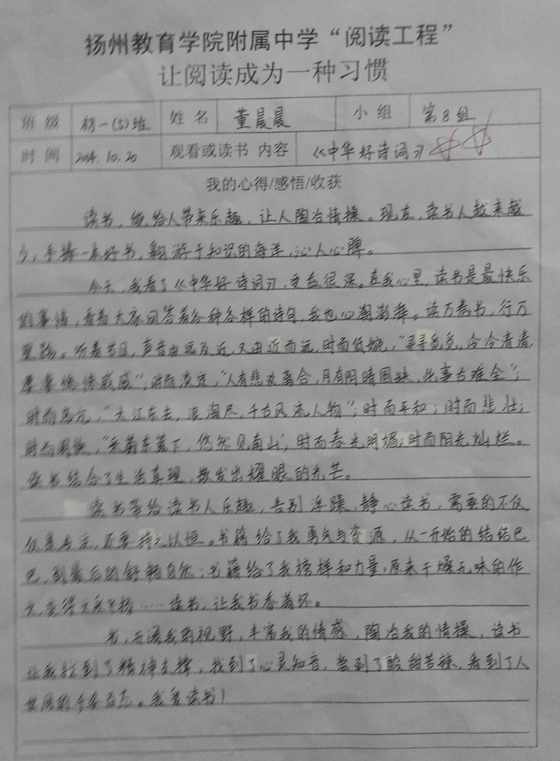 扬州教育学院附属中学“阅读工程”
让阅读成为一种习惯
班级 初一(5)班 姓名 董晨晨 小组 第8组
时间 2014.10.20 观看或读书 内容 《中华好诗词》
我的心得/感悟/收获
读书,能给人带来乐趣,让人陶冶情操。现在,读书人越来越
少,手捧一本好书,翱游于知识的海洋,沁人心脾。
今天,我看了《中华好诗词》,受益很深。在我心里,读书是最快乐
的事情,看着大家回答着各种各样的诗句,我也心潮澎湃。读万卷书,行万
里路。听着节目,声音由远及近,又由近而远,时而低婉,“寻寻觅觅,冷冷清清,
凄凄惨惨戚戚”,时而凄凉,“人有悲欢离合,月有阴晴圆缺,此事古难全”;
时而高亢,“大江东去,浪淘尽,千古风流人物”;时而平和;时而悲壮;
时而闲愉,“采菊东篱下,悠然见南山”,时而春光明媚;时而阳光灿烂。
读书结合了生活真理,散发出耀眼的光芒。
读书带给读书人乐趣,告别浮躁,静心读书,需要的不仅
仅是专家,还要持之以恒。书籍给了我勇气与资源,从一开始的结结巴
巴,到最后的舒畅自然;书籍给了我榜样和力量,原来干燥无味的作
文,变得……读书,让我书香满怀。
书,开阔我的视野,丰富我的情感,陶冶我的情操,读书
让我找到了精神支撑,找到了心灵知音,尝到了酸甜苦辣,看到了人
世间的。我爱读书!